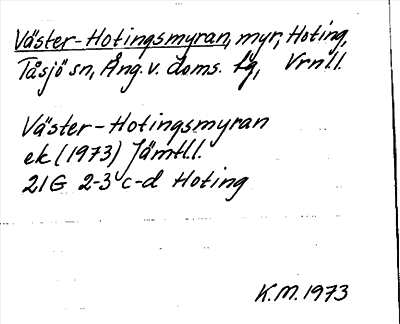 Väster-Hotingsmyran, myr, Hoting,
Tåsjö sn, Ång. v. doms. tg, Vrnll.
Väster-Hotingsmyran
ek (1973) Jämtll.
21G 2-3 c-d Hoting
K.M. 1973